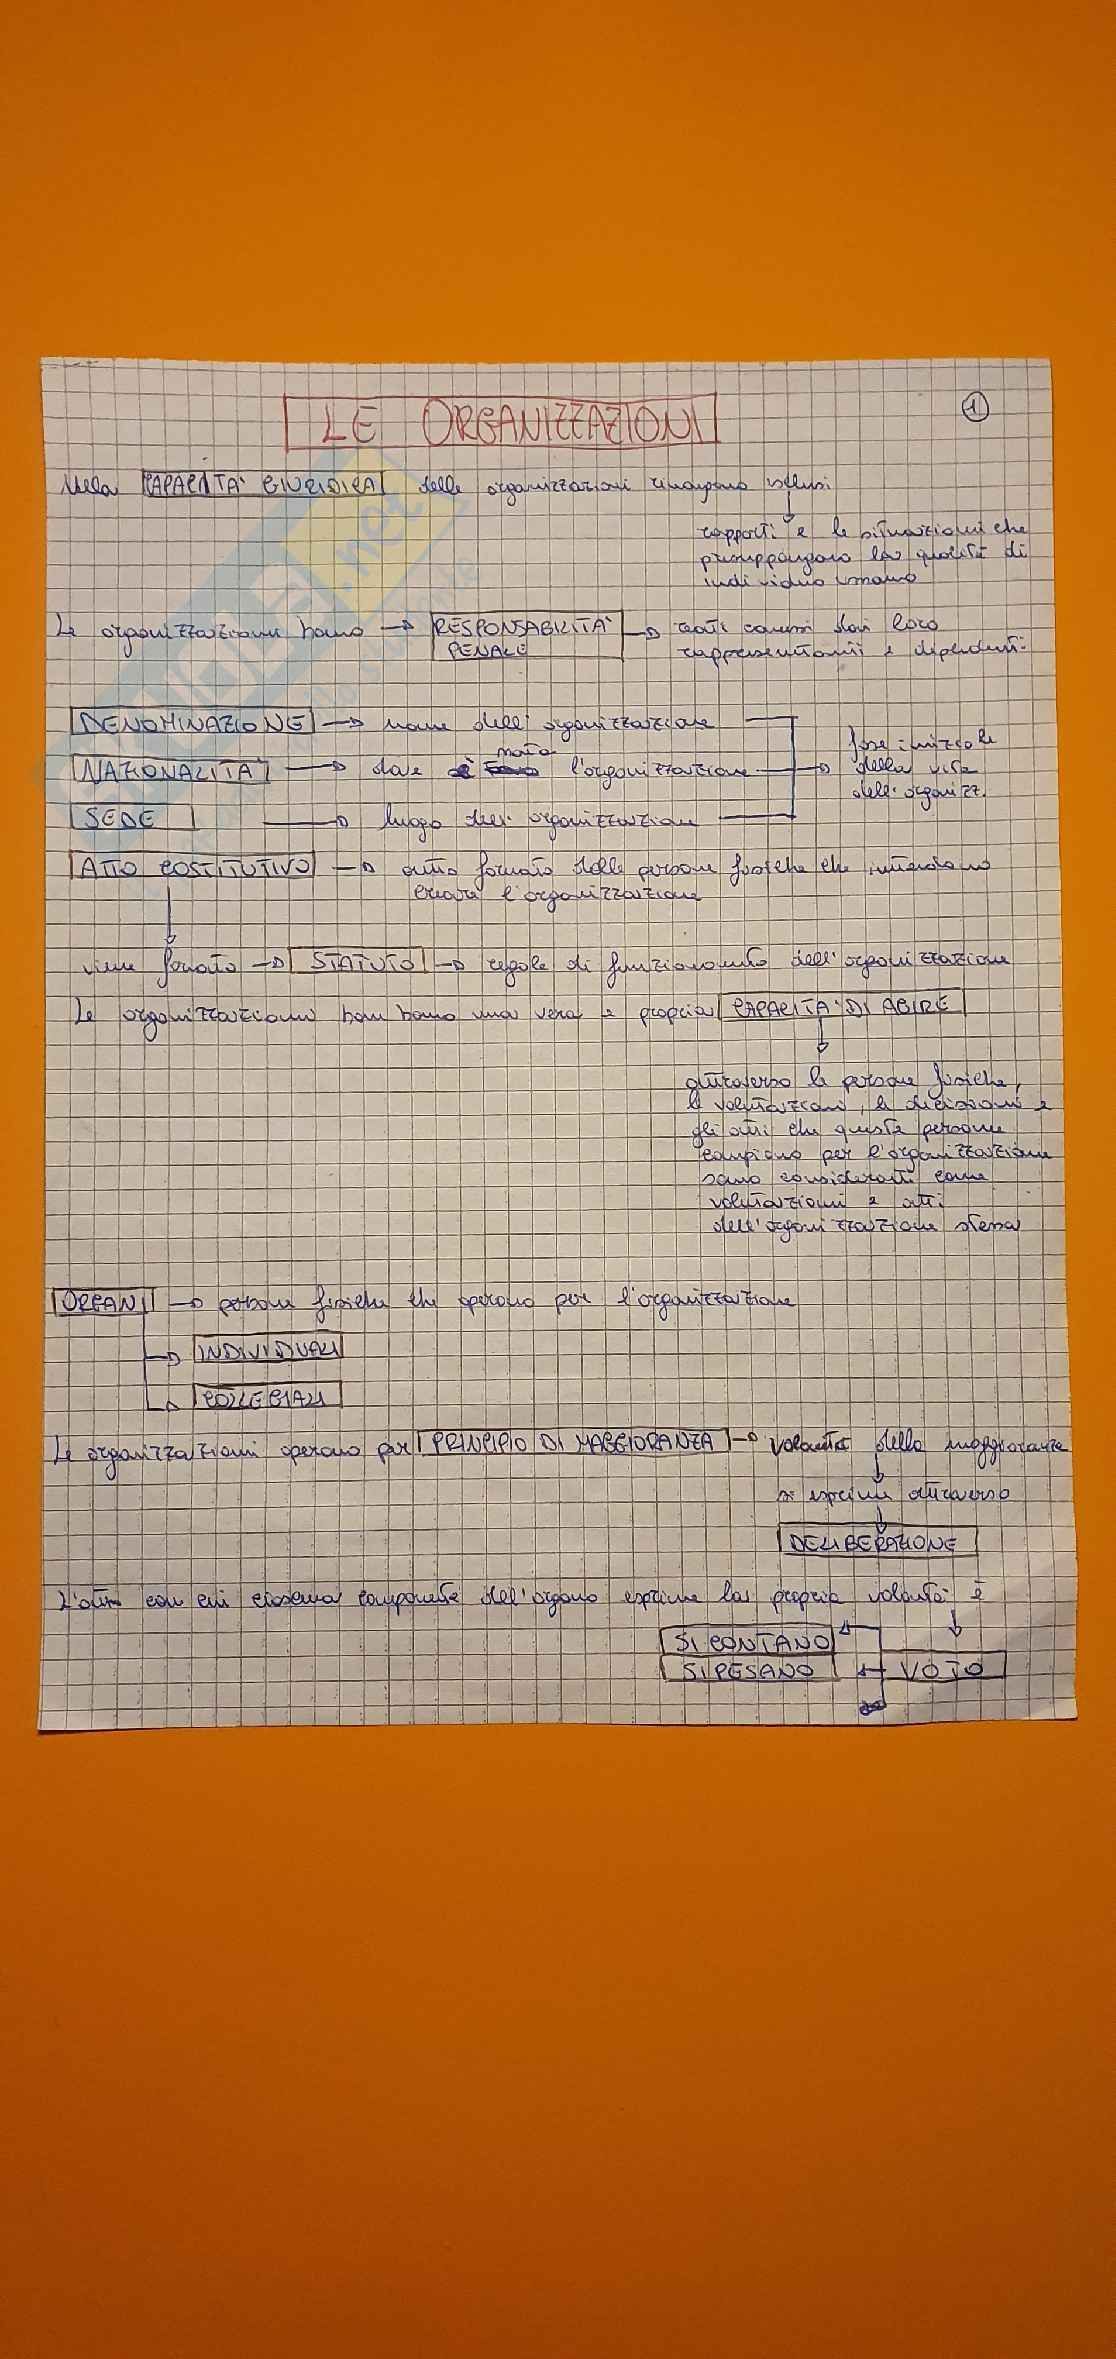 LE ORGANIZZAZIONI
1
Nella CAPACITÀ GIURIDICA delle organizzazioni rimangono esclusi
rapporti e le situazioni che
presuppongono la qualità di
individuo umano
Le organizzazioni hanno → RESPONSABILITÀ PENALE → reati commessi dai loro
rappresentanti e dipendenti
DENOMINAZIONE → nome dell'organizzazione
NAZIONALITÀ → dove nata l'organizzazione
SEDE → luogo dell'organizzazione
fase iniziale
della vita
dell'organizz.
ATTO COSTITUTIVO → atto formato dalle persone fisiche che intendono
creare l'organizzazione
viene formato → STATUTO → regole di funzionamento dell'organizzazione
Le organizzazioni non hanno una vera e propria CAPACITÀ DI AGIRE
attraverso le persone fisiche,
le valutazioni, le decisioni e
gli atti che queste persone
compiono per l'organizzazione
sono considerati come
valutazioni e atti
dell'organizzazione stessa
ORGANI → persone fisiche che operano per l'organizzazione
→ INDIVIDUALI
→ COLLEGIALI
Le organizzazioni operano per PRINCIPIO DI MAGGIORANZA → volontà della maggioranza
si esprime attraverso
DELIBERAZIONE
L'atto con cui ciascun componente dell'organo esprime la propria volontà è
SI CONTANO
SI PESANO ← VOTO
SKUOLA.net